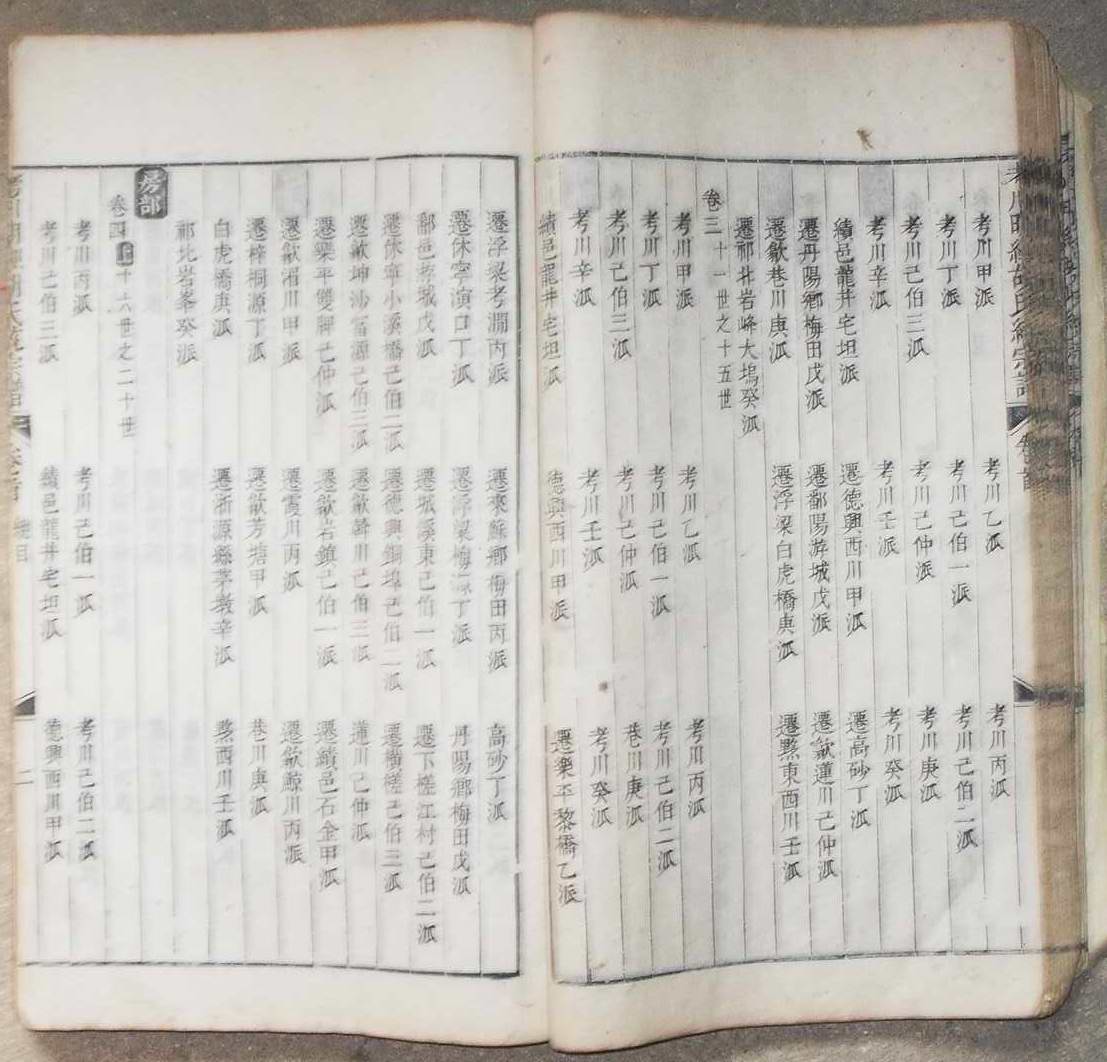 考川明經胡氏統宗譜 卷首
考川甲派 考川乙派 考川丙派
考川丁派 考川己伯一派 考川己伯二派
考川己伯三派 考川己仲派 考川庚派
考川辛派 考川壬派 考川癸派
績邑龍井宅坦派 遷德興西川甲派 遷高砂丁派
遷丹陽鄉梅田戊派 遷鄱陽游城戊派 遷歙蓮川己仲派
遷歙巷川庚派 遷浮梁白虎橋庚派 遷黟東西川壬派
遷祁北岩峰大塢癸派
卷三 十一世之十五世
考川甲派 考川乙派 考川丙派
考川丁派 考川己伯一派 考川己伯二派
考川己伯三派 考川己仲派 巷川庚派
考川辛派 考川壬派 考川癸派
績邑龍井宅坦派 德興西川甲派 遷樂平黎橋乙派
遷浮梁考㵎丙派 遷來蘇鄉梅田丙派 高砂丁派
遷休寧演口丁派 遷浮梁梅源丁派 丹陽鄉梅田戊派
鄱邑游城戊派 遷城溪東己伯一派 遷下槎江村己伯二派
遷休寧小溪橋己伯二派 遷德興銅埠己伯二派 遷橫槎己伯三派
遷歙坤沙富源己伯三派 遷歙韓川己伯三派 蓮川己仲派
遷樂平雙牌己仲派 遷歙岩鎮己伯一派 遷績邑石金甲派
遷歙湄川甲派 遷霞川丙派 遷歙鯨川丙派
遷梓桐源丁派 遷歙芳塘甲派 巷川庚派
白虎橋庚派 遷浙源 辛派 黟西川壬派
祁北岩峯癸派
房部
卷四上 十六世之二十世
考川丙派 考川己伯一派 考川己伯二派
考川己伯三派 績邑龍井宅坦派 德興西川甲派
考川明經胡氏統宗譜 卷首 總目 二